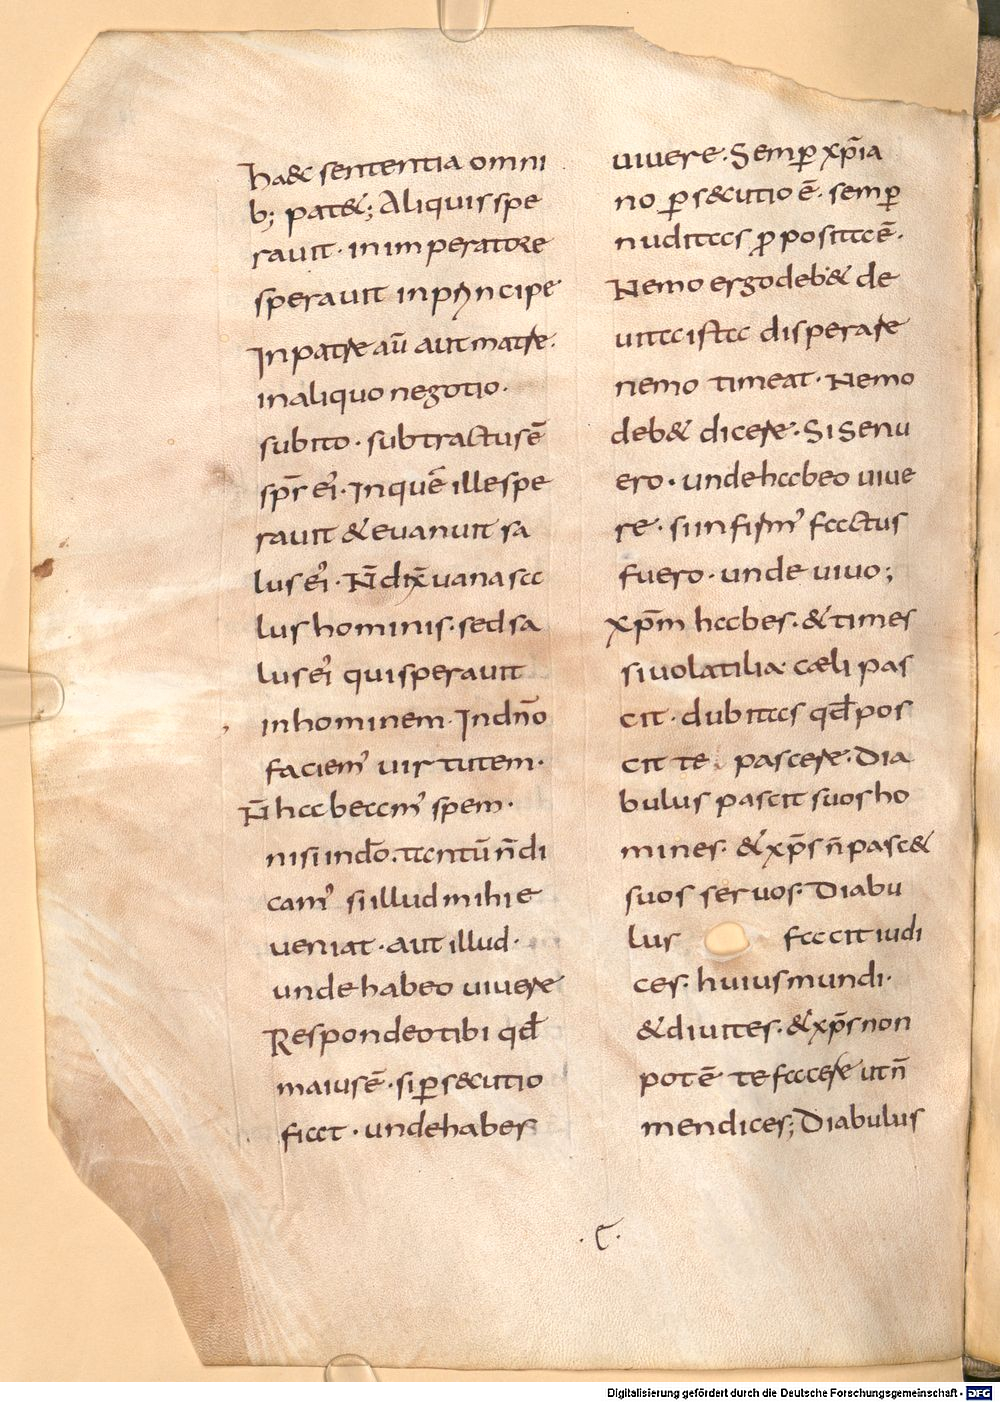 ha&c sententia omni
b; pat&; Aliquis spe
rauit · in imperatore
sperauit in principe
In patre aū aut matre.
in aliquo negotio.
subito · subtractus ē
spr̄ ei'. In quē ille spe
rauit & euanuit sa
lus ei'. N̄ dix̄ uana sa
lus hominis. sed sa
lus ei' qui sperauit
in hominem. In dn̄o
faciem' uirtutem.
N̄ habeam' spem.
nisi in dō. tantū n̄ di
cam' si illud mihi e
ueniat. aut illud.
unde habeo uiuere
Respondeo tibi qđ
maius ē. si ꝑs&cutio
fiat. unde habes
uiuere. Semꝑ xp̄ia
no ꝑs&cutio ē. semꝑ
nuditas ꝓposita ē.
Nemo ergo deb& de
uita ista disperare
nemo timeat. Nemo
deb& dicere. Si senu
ero. unde habeo uiue
re. si infirm' factus
fuero. unde uiuo;
xp̄m habes. & times
si uolatilia cæli pas
cit. dubitas qđ pos
cit te pascere. Dia
bulus pascit suos ho
mines. & xp̄s n̄ pasc&
suos seruos. Diabu
lus facit iudi
ces. huius mundi.
& diuites. & xp̄s non
pot ē te facere ut n̄
mendices; Diabulus
· C ·
Digitalisierung gefördert durch die Deutsche Forschungsgemeinschaft - DFG